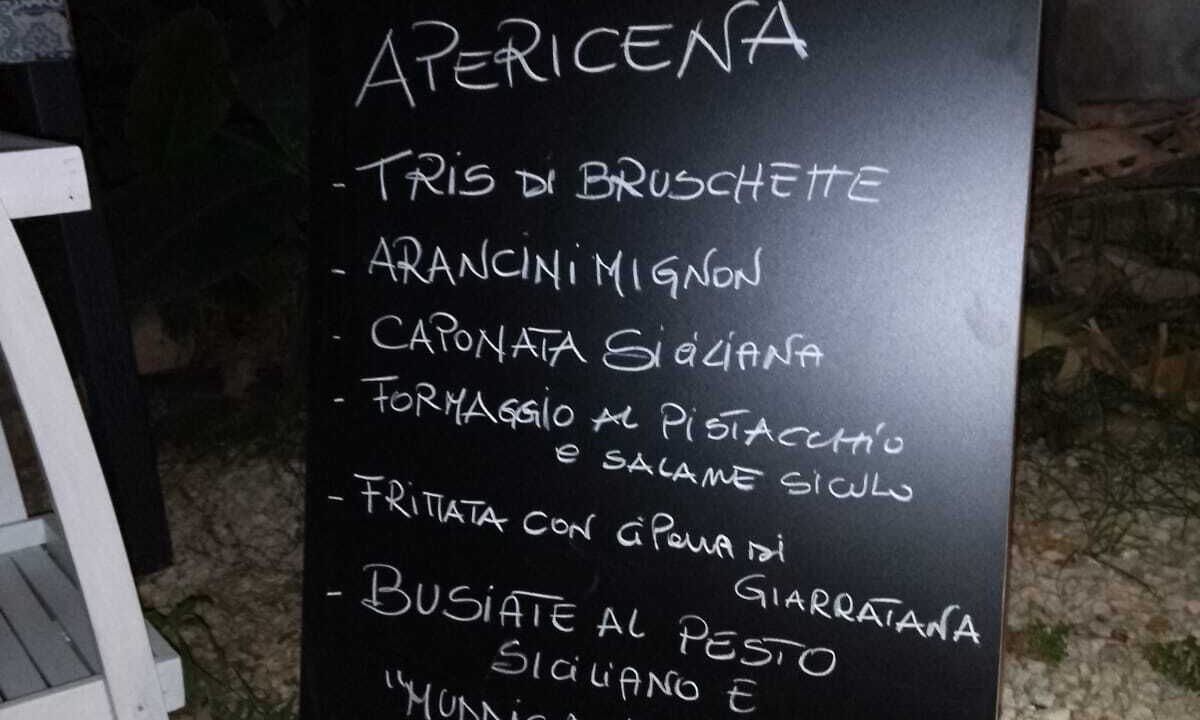 APERICENA
- TRIS DI BRUSCHETTE
- ARANCINI MIGNON
- CAPONATA SICILIANA
- FORMAGGIO AL PISTACCHIO
e SALAME SICULO
- FRITTATA CON CIPOLLA DI
GIARRATANA
- BUSIATE AL PESTO
SICILIANO E